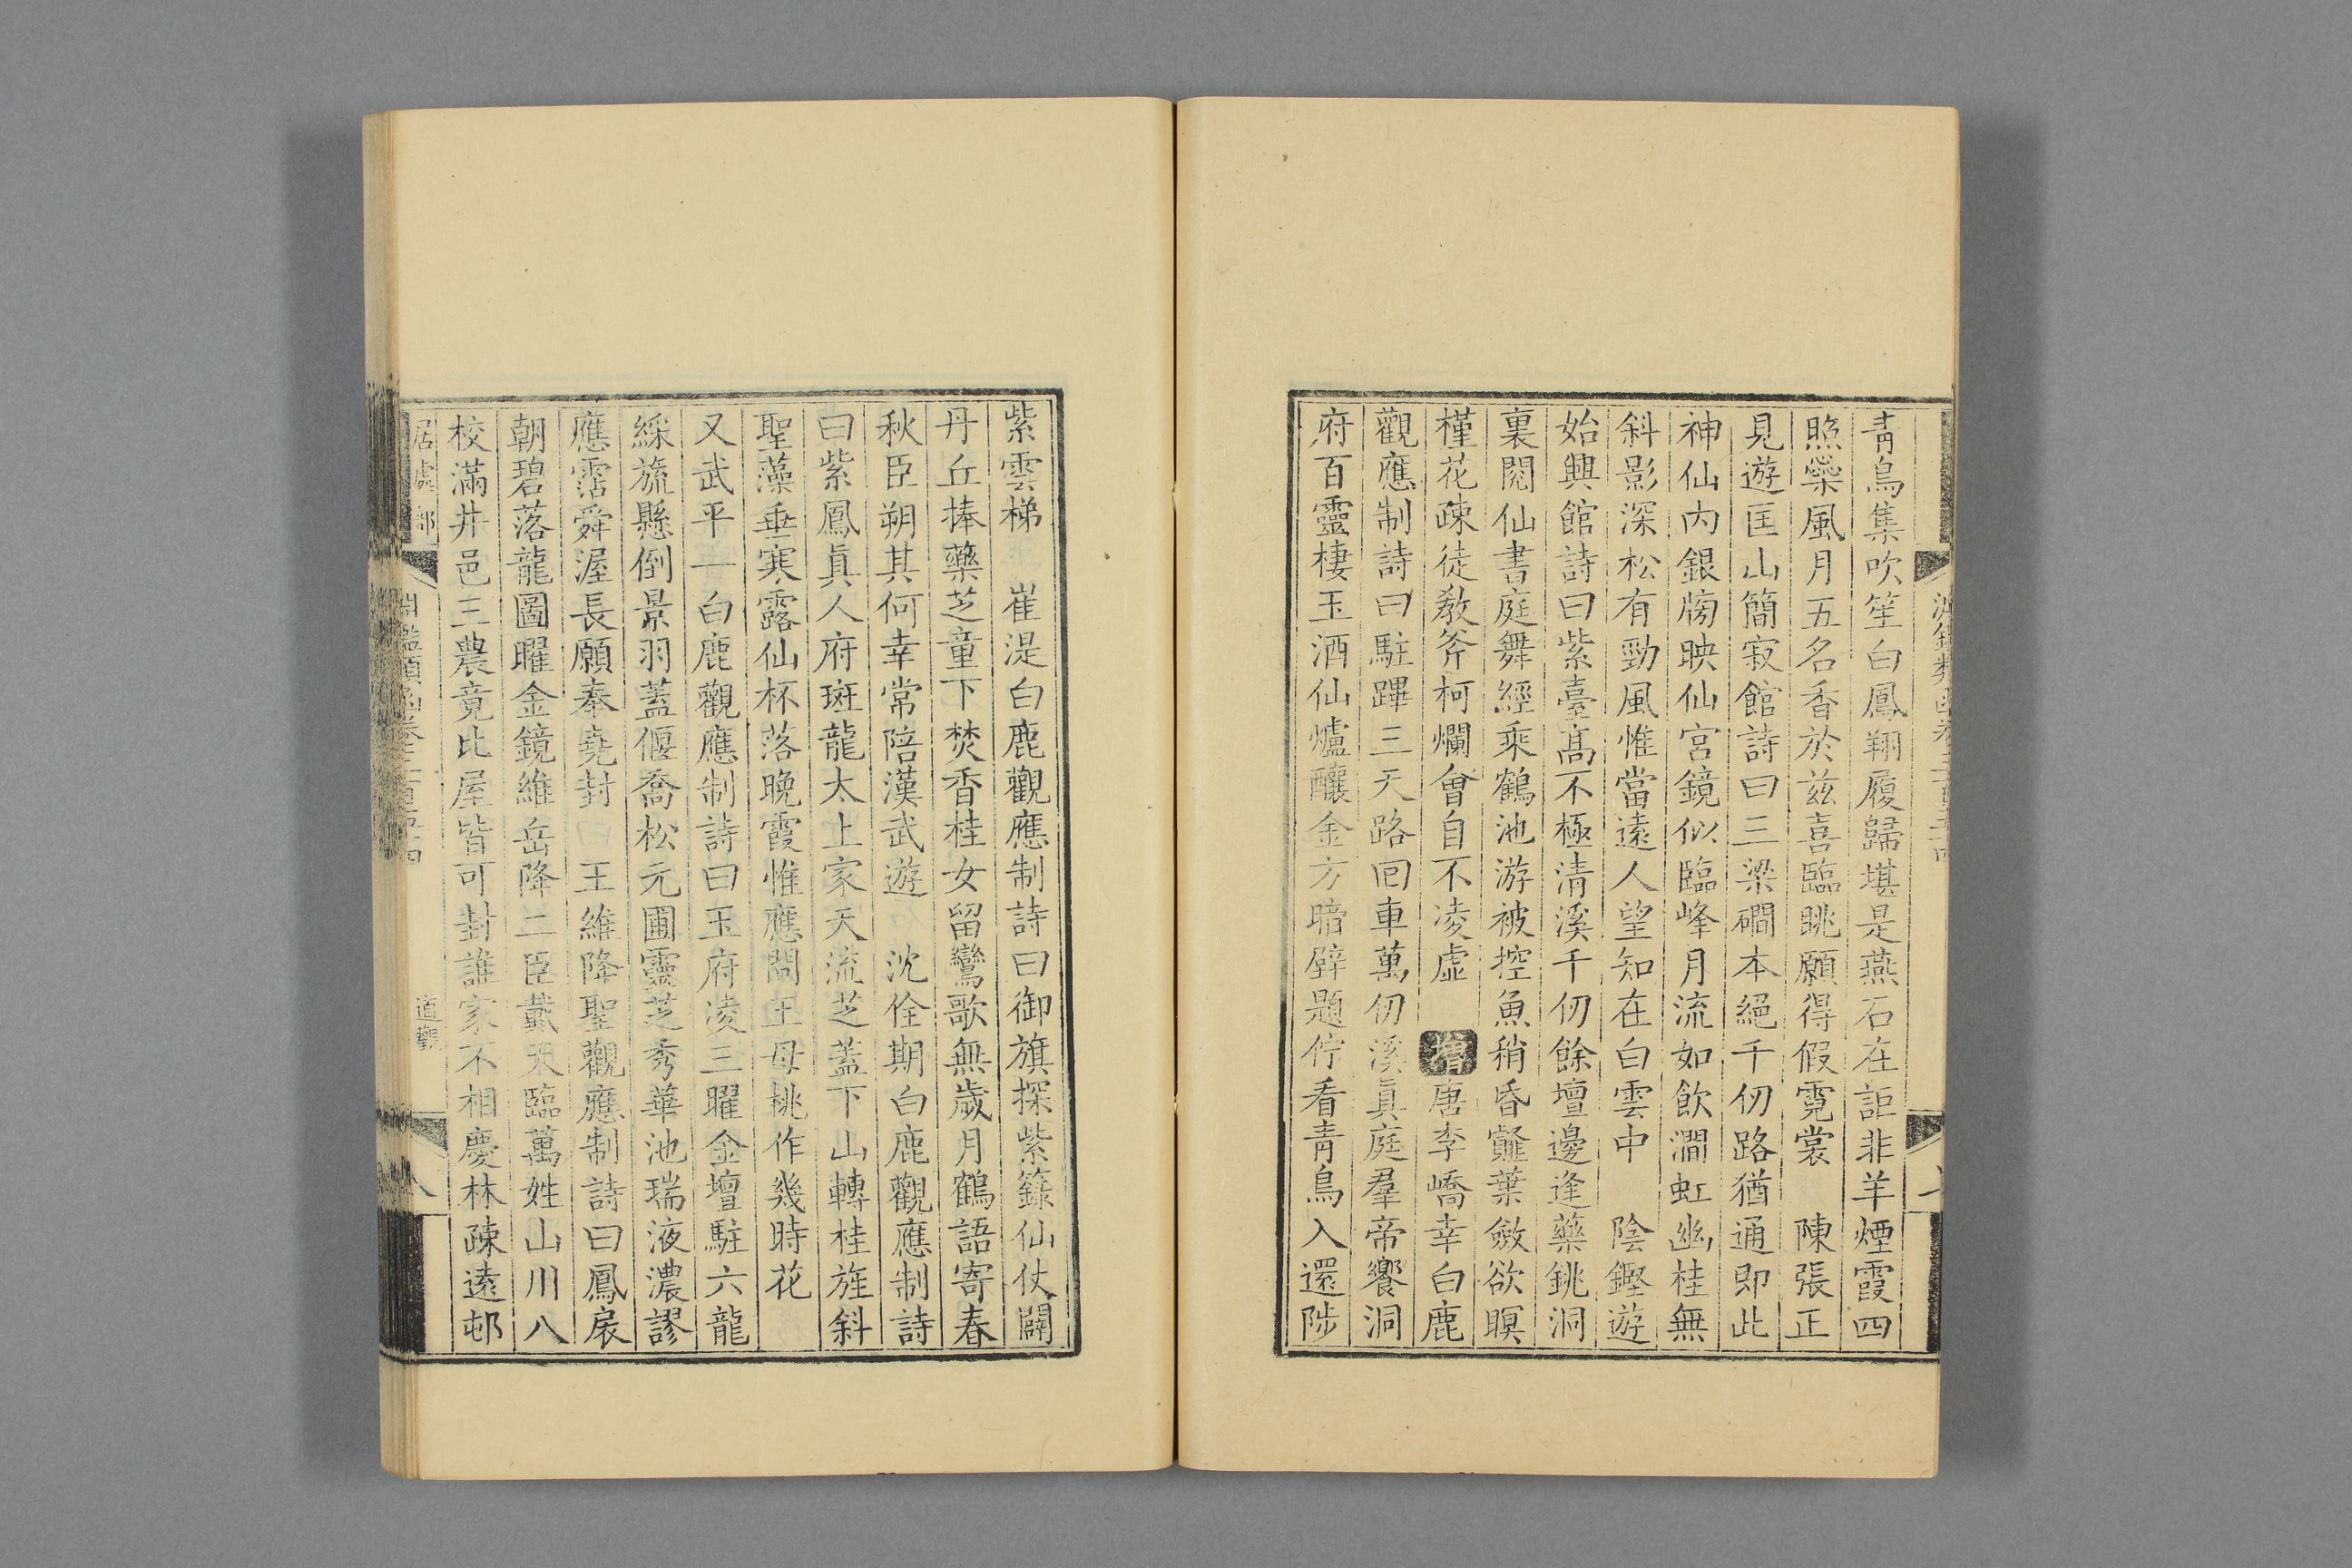 青鳥集吹笙白鳳翔履歸堪是燕石在詎非羊煙霞四
照蘂風月五名香於兹喜臨眺願得假霓裳　陳張正
見遊匡山簡寂館詩曰三梁礀本絕千仞路猶通即此
神仙內銀牓映仙宮鏡似臨峰月流如飲澗虹幽桂無
斜影深松有勁風惟當遠人望知在白雲中　陰鏗遊
始興館詩曰紫臺高不極清溪千仞餘壇邊逢藥銚洞
裏閱仙書庭舞經乘鶴池游被控魚稍昏蘿葉斂欲暝
槿花疎徒教斧柯爛會自不凌虛　增唐李嶠幸白鹿
觀應制詩曰駐蹕三天路回車萬仞溪真庭羣帝饗洞
府百靈棲玉酒仙爐釀金方暗壁題佇看青鳥入還陟
紫雲梯　崔湜白鹿觀應制詩曰御旗探紫籙仙仗闢
丹丘捧藥芝童下焚香桂女留鸞歌無歲月鶴語寄春
秋臣朔其何幸常陪漢武遊　沈佺期白鹿觀應制詩
曰紫鳳真人府斑龍太上家天流芝蓋下山轉桂旌斜
聖藻垂寒露仙杯落晚霞惟應問王母桃作幾時花
又武平一白鹿觀應制詩曰玉府凌三曜金壇駐六龍
綵旒懸倒景羽蓋偃喬松元圃靈芝秀華池瑞液濃謬
應霑舜渥長願奉堯封　王維降聖觀應制詩曰鳳扆
朝碧落龍圖曜金鏡維岳降二臣戴天臨萬姓山川八
校滿井邑三農竟比屋皆可封誰家不相慶林疎遠邨
居處部
道觀
八